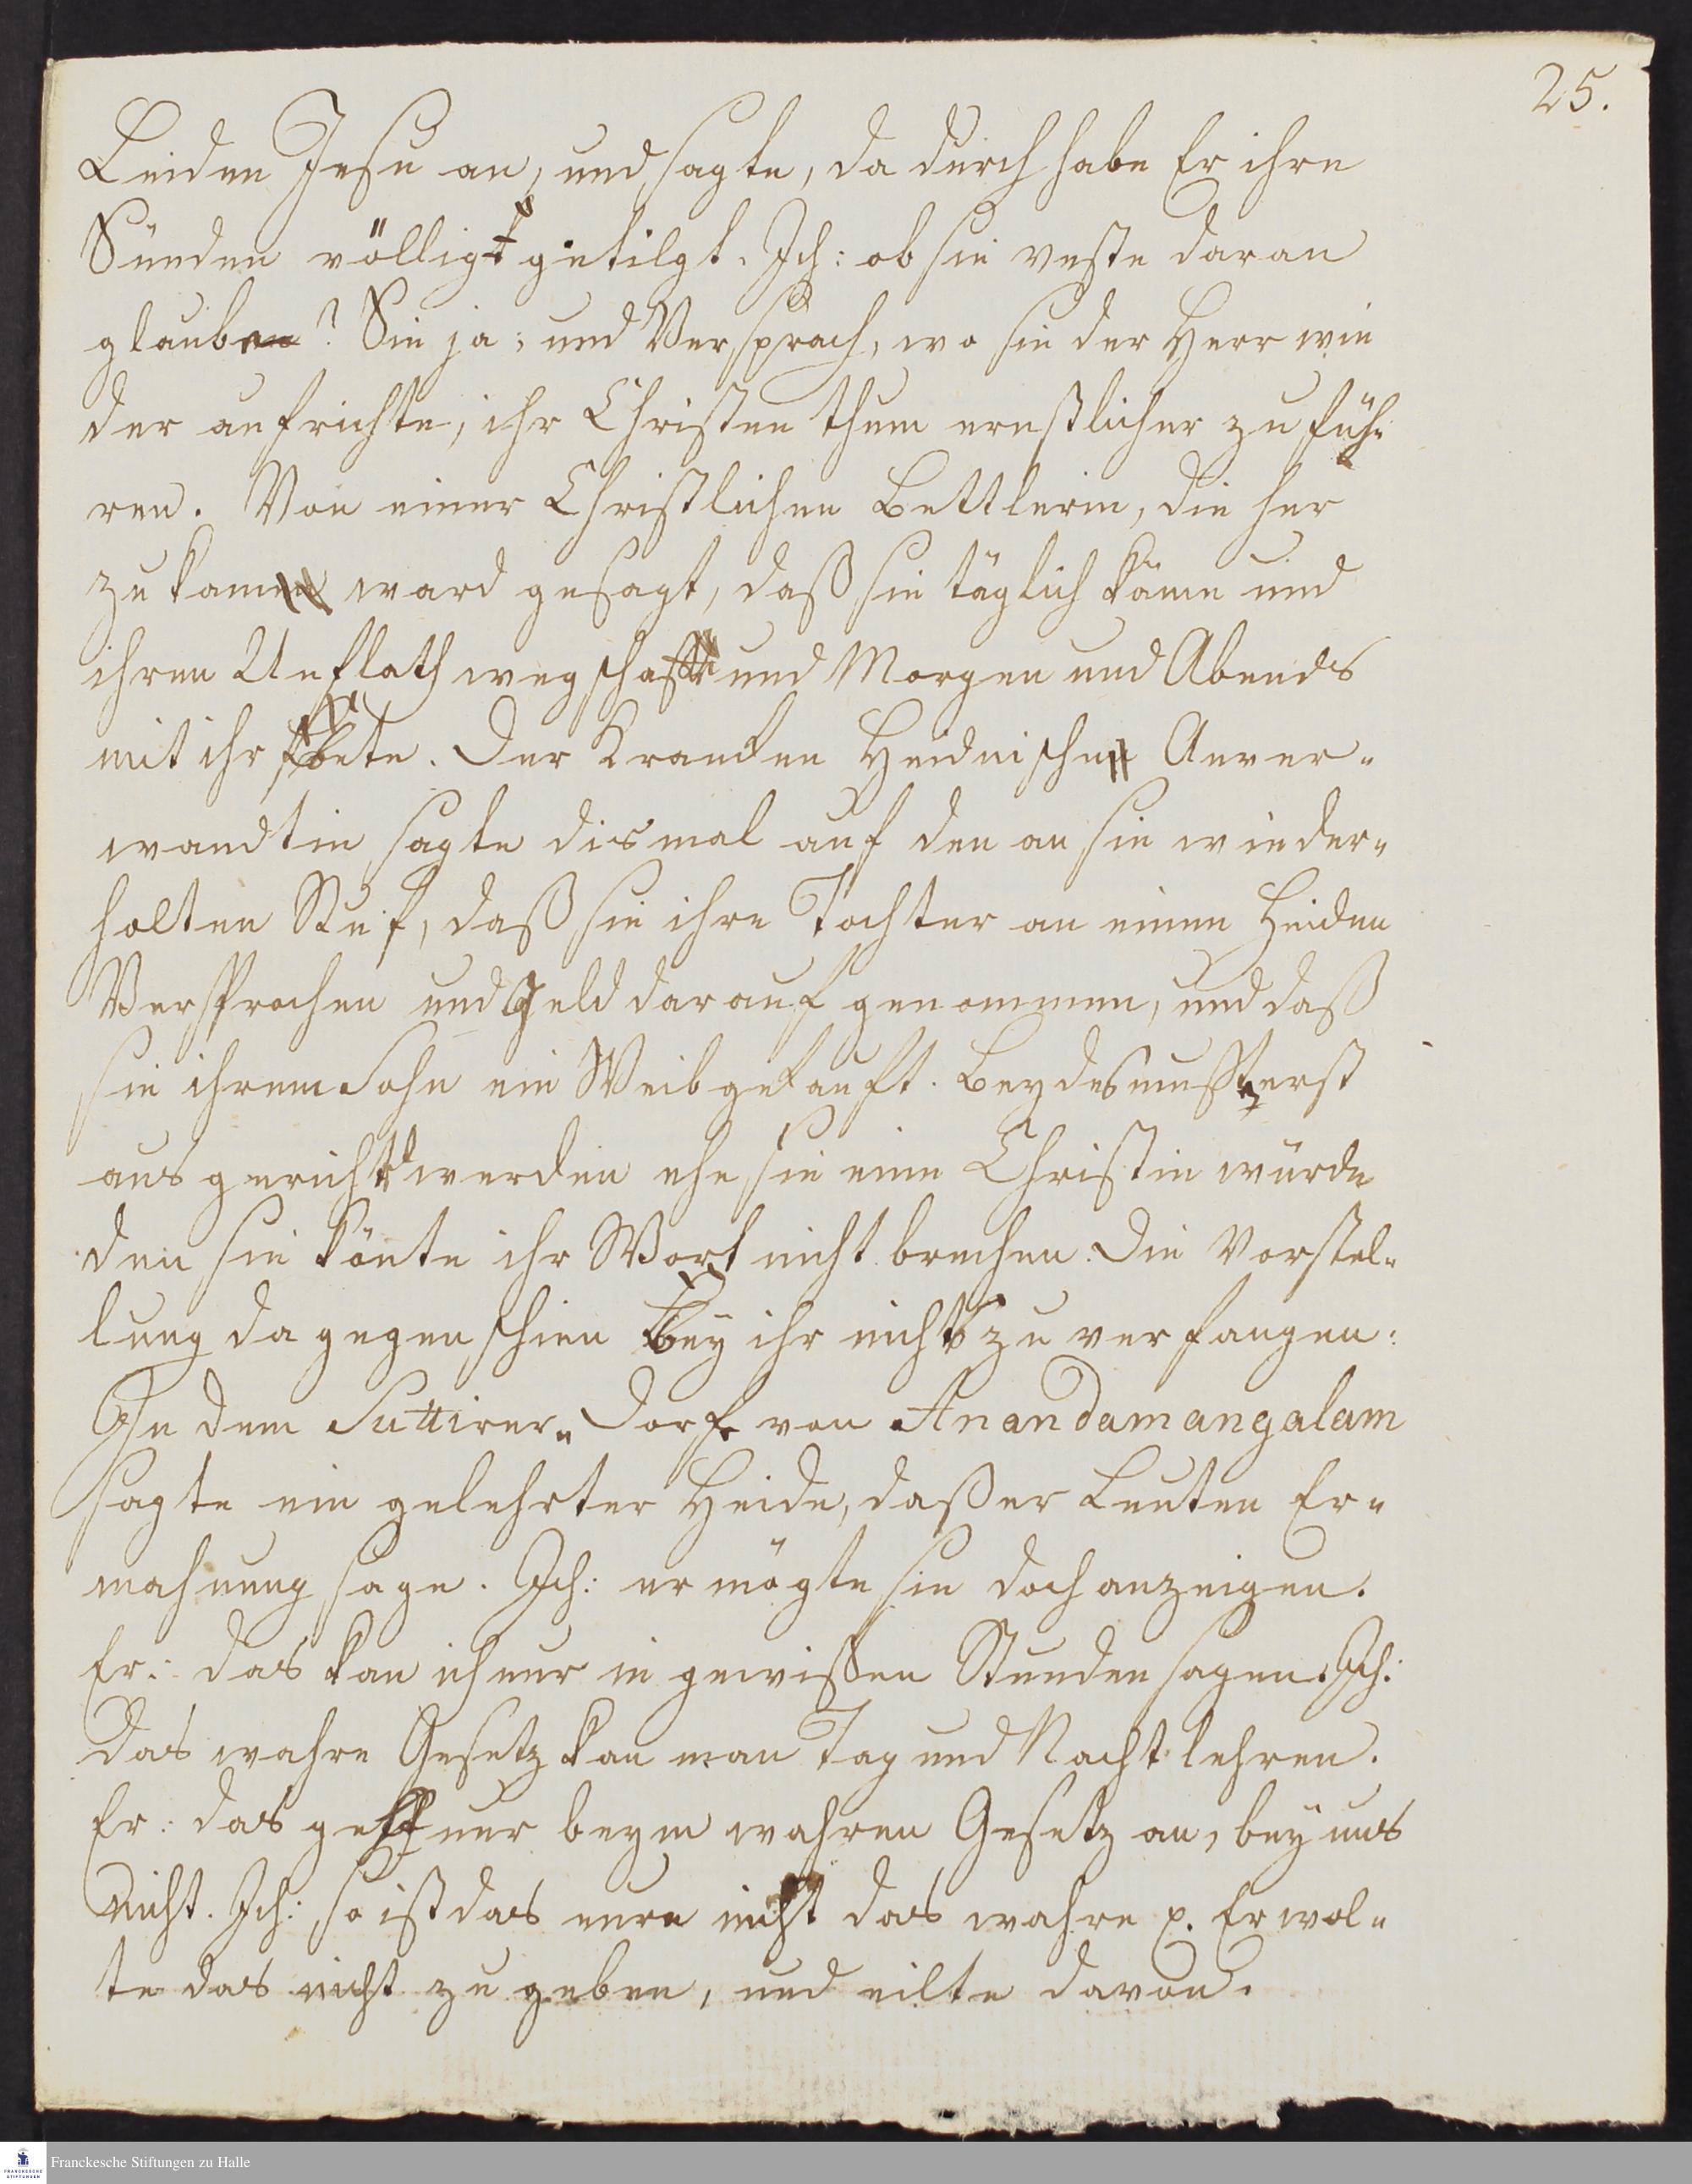 25.
Leiden Jesu an, und sagte, da durch habe Er ihre
Sünden völlig getilgt. Ich: ob sie veste daran
glaube? Sie ja; und Versprach, wo sie der Herr wie
der aufrichte, ihr Christen thum ernstlicher zu füh-
ren. Von einer Christlichen Bettlerin, die her
zu kam ward gesagt, daß sie täglich käme und
ihren Unflath weg schaffe und Morgen und Abends
mit ihr bete. Der Krancken Heidnische Anver-
wandtin sagte dismal auf den an sie wieder-
holten Ruf, daß sie ihre Tochter an einen Heiden
Versprochen und Geld darauf genommen, und daß
sie ihrem Sohn ein Weib gekauft. Beydes müste erst
aus gericht werden ehe sie eine Christin würde
den sie könte ihr Wort nicht brechen. Die Vorstel-
lung da gegen schien bey ihr nichts zu verfangen.
In dem Suttirer-Dorf von Anandamangalam
sagte ein gelehrter Heide, daß er Leuten Er-
mahnung sage. Ich: er mögte sie doch anzeigen.
Er: das kan ich nur in gewißen Stunden sagen. Ich:
Das wahre Gesetz kan man Tag und Nacht lehren.
Er: das geht nur beym wahren Gesetz an, bey uns
nicht. Ich: so ist das eure nicht das wahre p. Er wol-
te das nicht zu geben, und eilte davon.
Franckesche Stiftungen zu Halle
FRANCKESCHE
STIFTUNGEN